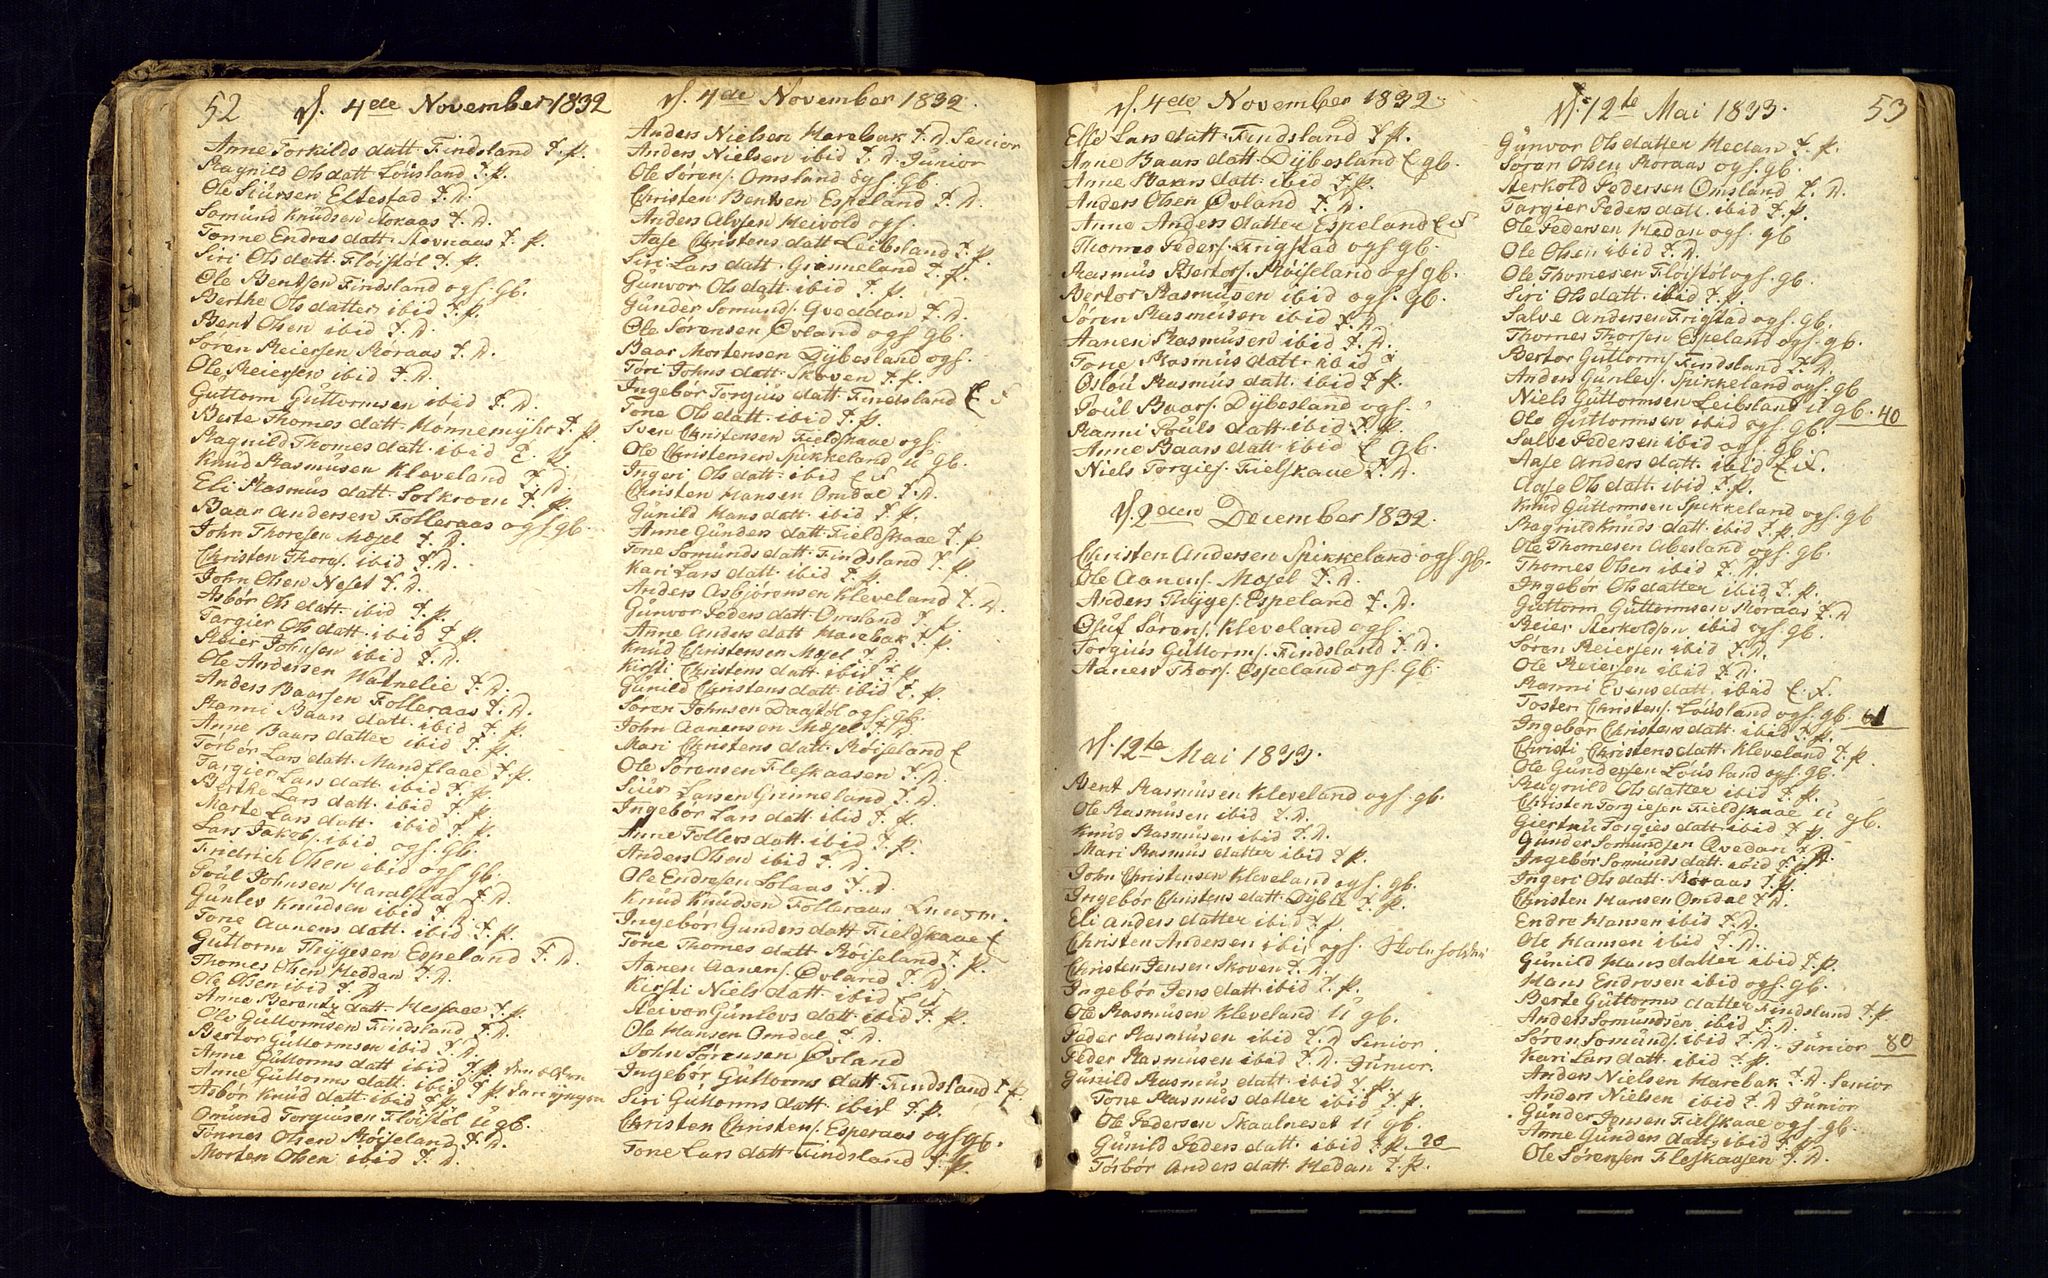 52
d. 4de November 1832
Anne Torkilds datt Findsland T. P.
Ragnild Ols datt Lousland T. P.
Ole Siursen Eltestad T. D.
Somund Knudsen Roraas T. D.
Tonne Endres datt Stovraas T. P.
Siri Ols datt Fløistøl T. P.
Ole Bentsen Findsland ogs. Gb.
Berthe Ols datter ibid T. P.
Bent Olsen ibid T. D.
Soren Reiersen Roraas T. D.
Ole Reiersen ibid T. D.
Guttorm Guttormsen ibid T. D.
Berte Thomes datt Monnemyhr T. P.
Ragnild Thomes datt ibid E.
Knud Rasmusen Kleveland T. D.
Eli Rasmus datt Solkroen T. P.
Baar Andersen Folleraas ogs gb.
John Thoresen Mæsel T. D.
Christen Thors. ibid T. D.
John Olsen Neset T. D.
Asbor Ols datt ibid T. P.
Targier Ols datt ibid T. P.
Reier Johsen ibid T. D.
Ole Andersen Hatnelie T. D.
Anders Baarsen Folleraas T. D.
Ranni Baars datt ibid T. P.
Anne Baars datter ibid T. P.
Torbor Lars datt Mandflaae T. P.
Targier Lars datt ibid T. P.
Berthe Lars datt ibid T. P.
Marte Lars datt ibid T. P.
Lars Jakobs. ibid ogs. Gb.
Fridrich Olsen ibid ogs gb.
Poul Johnsen Haralstad T. D.
Gunlev Knudsen ibid T. D.
Tone Aanens datt ibid T. P.
Guttorm Thygesen Espeland T. D.
Thomes Olsen Heddan T. D.
Ole Olsen ibid T. D
Anne Berents datt Hessaae T. P.
Ole Guttormsen Findsland T. D.
Bertor Guttormsen ibid T. D.
Anne Guttorms datt ibid T. P. den elden
Anne Guttorms datt ibid T. P. den yngen
Asbor Knud datt ibid T. P.
Omund Torgiusen Fløistøl U gb.
Tonnes Olsen Røiseland T. D.
Morten Olsen ibid T. D.
d. 4de November 1832.
Anders Nielsen Harebak T. D Senior
Anders Nielsen ibid T. D Junior
Ole Sorens. Omsland ogs. Gb.
Christen Bentsen Espeland T. D.
Anders Alvsen Heivold ogs.
Aase Christens datt Leibsland T. P.
Siri Lars datt Grinneland T. P.
Gunvor Ols datt ibid T. P.
Gunder Somunds. Qveddan T. D.
Ole Sorensen Øvland ogs gb.
Baar Mortensen Dybesland ogs.
Tori Johns datt Skoven T. P.
Ingebor Torgius datt Findsland E
Tone Ols datt ibid T. P.
Sven Christensen Fieldskaae ogs.
Ole Christensen Spikkeland U gb.
Ingeri Ols datt ibid E
Christen Hansen Omdal T. D.
Gunild Hans datt ibid T. P.
Anne Gunders datt Fieldskaae T. P
Tone Somunds datt Findsland T. P
Kari Lars datt ibid T. P.
Anders Asbjørensen Kleveland T. D.
Gunvor Peders datt Omsland T. P.
Anne Anders datt Harebak T. P
Knud Christensen Mæsel T. D.
Kirsti Christens datt ibid T. P
Gunild Christens datt ibid T. P.
Soren Johnsen Daastøl ogs gb.
John Aanensen Mæsel T. D
Mari Christens datt Røiseland E
Ole Sørensen Fleskaasen T. D.
Siur Larsen Grinneland T. D.
Ingebør Lars datt ibid T. P.
Anne Tollevs datt ibid T. P.
Anders Olsen ibid T. D.
Ole Endresen Solaas T. D.
Knud Knudsen Folleraas
Ingebor Gunders datt Fieldskaae E
Tone Thomes datt Røiseland T. P.
Aanen Aanens. Øvland T. D.
Kirsti Niels datt ibid E
Reivor Gunlevs datt ibid T. P.
Ole Hansen Omdal T. D.
John Sørensen Øvland
Ingebor Guttorms datt Findsland T. P.
Siri Guttorms datt ibid T. P.
Christen Christens. Esperaas ogs gb.
Tone Lars datt Findsland T. P.
d. 4de November 1832.
Else Lars datt Findsland T P.
Anne Baars datt Dybesland E gb.
Anne Baars datt ibid T. P.
Anders Olsen Øvland T. D.
Anne Anders datter Espeland E
Thomes Peders. Lingstad ogs gb.
Rasmus Bertors. Røiseland ogs gb.
Bertor Rasmusen ibid ogs. gb.
Søren Rasmusen ibid T. D.
Aanen Rasmusen ibid T. D.
Tone Rasmus datt ibid
Oslou Rasmus datt ibid T. P.
Poul Baars. Dybesland ogs.
Ranni Pouls datt ibid T. P.
Anne Baars datt ibid E gb.
Niels Torgies. Fielskaae T. D.
d. 2den December 1832.
Christen Andersen Spikkeland ogs. gb.
Ole Aanens. Mæsel T. D.
Anders Thyges. Espeland T. D.
Osuf Sørens. Kleveland ogs.
Torgius Guttorms. Findsland T. D.
Aanen Thors. Espeland ogs Gb.
d. 12te Mai 1833.
Bent Rasmusen Kleveland ogs. gb.
Ole Rasmusen ibid T. D.
Knud Rasmusen ibid T. D.
Mari Rasmus datter ibid T. P.
John Christensen Kleveland ogs. gb.
Ingebør Christens datt Dyblie T. P.
Eli Anders datter ibid T. P
Christen Andersen ibid ogs.
Christen Jensen Skoven T. D.
Ingebør Jens datt ibid T. P.
Ole Rasmusen Kleveland U gb.
Peder Rasmusen ibid T. D Senior
Peder Rasmusen ibid T. D. Junior.
Gunild Rasmus datt ibid T. P.
Tone Rasmus datter ibid T. P.
Ole Pedersen Skaalneset U gb.
Gunild Peders datt ibid T. P. 20
Torbør Anders datt Hedan T. P.
d. 12te Mai 1833.
53
Gunvor Ols datter Hedan T. P.
Søren Olsen Roraas ogs. gb.
Sterkold Pedersen Omsland T. D.
Targier Peders datt ibid T. P.
Ole Pedersen Hedan ogs. gb
Ole Olsen ibid T. D.
Ole Thomesen Fløistøl ogs. gb.
Siri Ols datt ibid T. P.
Salve Andersen Frigstad ogs. Gb.
Thomes Thorsen Espeland ogs. gb.
Bertor Guttorms. Findsland T. D.
Anders Gunlevs. Spikkeland ogs. gb
Niels Guttormsen Leibsland U gb. 40
Ole Guttormsen ibid ogs gb.
Salve Pedersen ibid ogs gb.
Aase Anders datt ibid E
Aase Ols datt ibid T. P.
Knud Guttormsen Spikkeland ogs. gb
Ragnild Knuds datt ibid T. P.
Ole Thomesen Abesland ogs. Gb.
Thomes Olsen ibid T. D.
Ingebør Ols datter ibid T. P.
Guttorm Guttormsen Roraas T. D
Reier Sterkoldsen ibid ogs. gb.
Søren Reiersen ibid T. D.
Ole Reiersen ibid T. D.
Ranni Evens datt ibid E
Tosten Christens. Lousland ogs. gb 61
Ingebør Christens datt ibid T. P.
Christi Christens datt Kleveland T. P.
Ole Gundersen Lousland ogs. gb.
Ragnild Ols datter ibid T. P.
Christen Torgiesen Fieldskaae U gb.
Giertru Torgies datt ibid T. P.
Gunder Somundsen Qvedan T. D
Ingebør Somunds datt ibid T. P.
Ingeri Ols datt Roraas T. P.
Christen Hansen Omdal T. D.
Endre Hansen ibid T. D
Ole Hansen ibid T. D.
Gunild Hans datter ibid T. P.
Hans Endresen ibid ogs. gb.
Berte Guttorms datter Findsland T. P.
Anders Somundsen ibid T. D.
Søren Somunds. ibid T. D. Junior 80
Kari Lars datt ibid T. P.
Anders Nielsen Harebak T. D Senior
Anders Nielsen ibid T. D Junior
Gunder Jensen Fielskaae ogs gb.
Anne Gunders datt ibid T. P
Ole Sørensen Fleskaasen T. D.